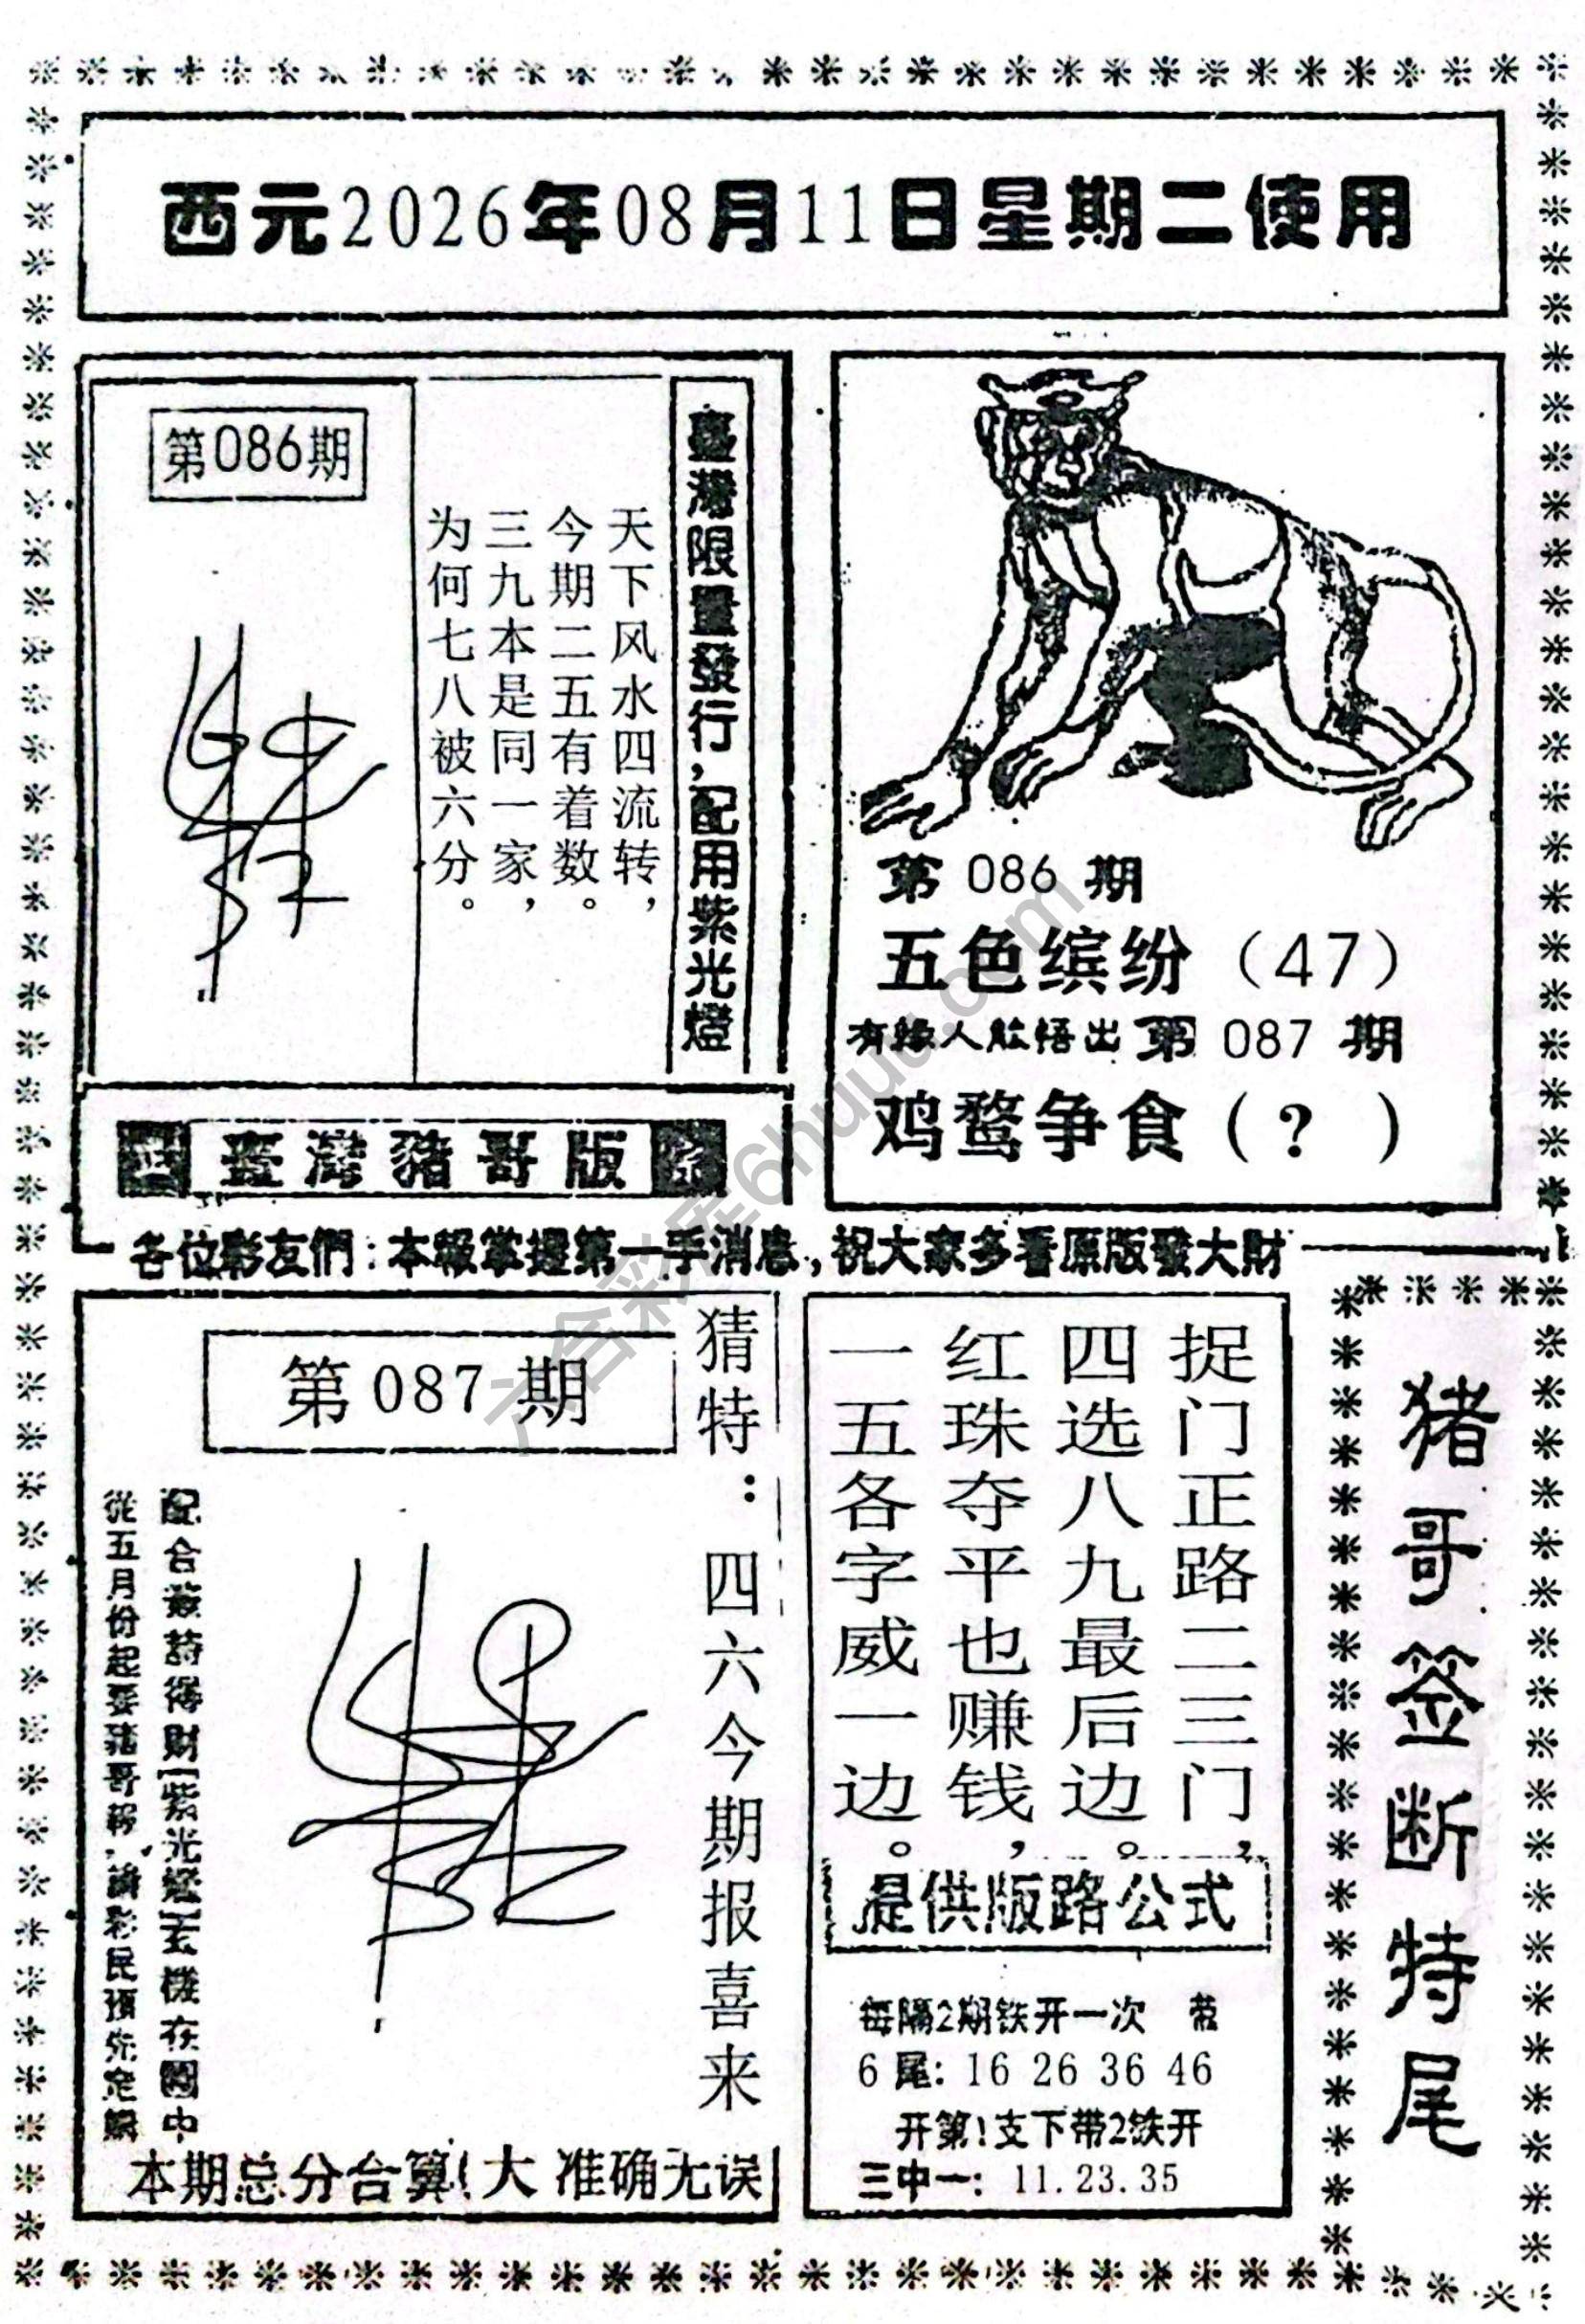 西元2026年08月11日星期二使用
第086期
臺灣限量發行,配用紫光燈
天下风水四流转，
今期二五有着数。
三九本是同一家，
为何七八被六分。
第 086 期
五色缤纷（47）
有緣人能悟出 第 087 期
鸡鹜争食（？）
臺灣豬哥版
各位彩友們:本報掌握第一手消息,祝大家多看原版發大財
第 087 期
猜特：四六今期报喜来
從五月份起要豬哥報,請彩民預先定購
本期总分合算!大 准确无误
捉门正路二三门，
四选八九最后边。
红珠夺平也赚钱，
一五各字威一边。
提供版路公式
每隔2期铁开一次 带
6 尾: 16 26 36 46
开第!支下带2铁开
三中一: 11.23.35
猪哥签断特尾
六合彩库6huut.com